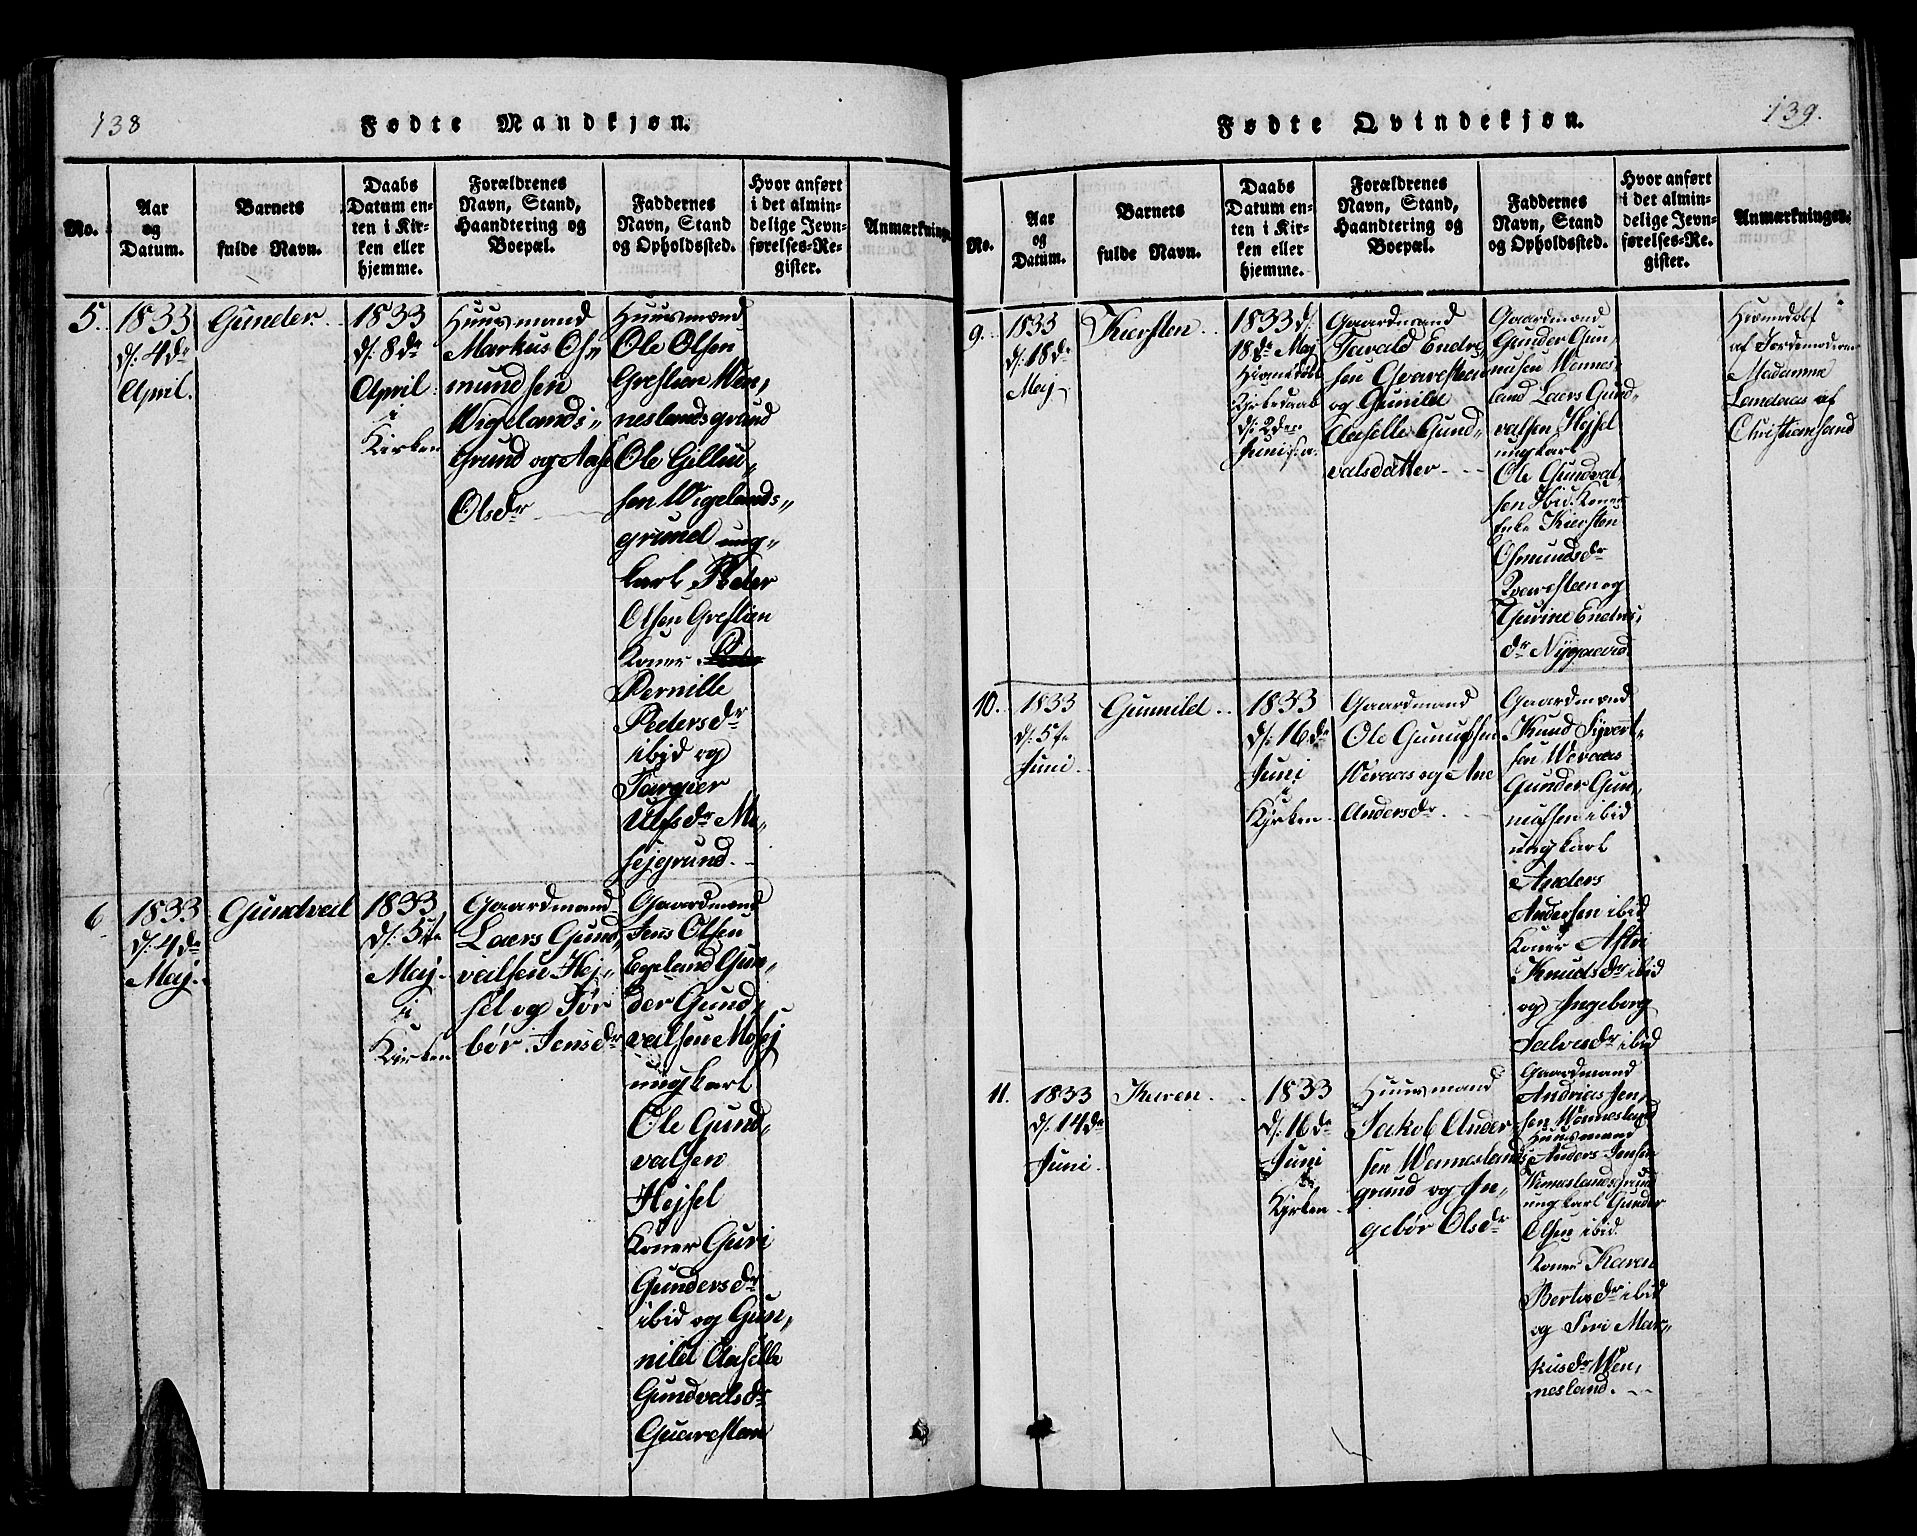 138
Fødte Mandkjøn.
No.
Aar
og
Datum.
Barnets
fulde Navn.
Daabs
Datum en-
ten i Kir-
ken eller
hjemme.
Forældrenes
Navn, Stand,
Haandtering og
Boepæl.
Faddernes
Navn, Stand
og Opholdssted.
Hvor anført
i det almin-
delige Jevn-
førelses-Re-
gister.
Anmærkninge
5.
1833
d: 4de
April.
Gunder.
1833
d: 8de
April
i
Kirken
Huusmand
Markus Os„
mundsen
Wigelands„
Grund og Aase
Olsdr
Huusmænd
Ole Olsen
Grestien Wen„
neslandsgrund
Ole Gillu„
sen Wigelands„
grund ung„
karl Peder
Olsen Grestien
Koner
Pernille
Pedersdr
ibid og
Torgier
Ulfsdr Mo„
sejgrund.
6
1833
d: 4de
Maj.
Gundval
1833
d: 5te
Maj.
i
Kirken
Gaardmand
Laers Gund„
valsen Hej„
sel og Tør
bør Jensdr
Gaardmænd
Jens Olsen
Egeland Gun„
der Gund„
valsen Mosej
ungkarl
Ole Gund„
valsen
Hejsel
Koner Guri
Gundersdr
ibid og Gun„
nild Aaselle
Gundvalsdr
Quarestein
139.
Fødte Qvindekjøn.
No.
Aar
og
Datum.
Barnets
fulde Navn.
Daabs
Datum en-
ten i Kir-
ken eller
hjemme.
Forældrenes
Navn, Stand,
Haandtering og
Boepæl.
Faddernes
Navn, Stand
og Opholdssted.
Hvor anført
i det almin-
delige Jevn-
førelses-Re-
gister.
Anmærkninger.
9.
1833
d: 18de
Maj
Kiersten
1833 d:
18de Maj
Hjemedøbt
Kirkedaab
d: 2den
Juni s. a.
Gaardmand
Tarald Endre„
sen Qvarestein
og Gunild
Aaselle Gund„
valsdatter
Gaardmænd
Gunder Gun„
nusen Wennes„
land Laers Gund„
valsen Hejsel
ungkarl
Ole Gundval„
sen Ibid. Koner
Enke Kiersten
Osmundsdr
Qvarestein og
Gurine Endres„
dr Nygaard.
Hjemedøbt
af Jordemoderen
Madamme
Landaas af
Christiansand
10.
1833
d: 5te
Juni.
Gunnild
1833
d: 16de
Juni
i
Kirken
Gaardmand
Ole Gunulfsen
Weraas og Ane
Andersdr
Gaardmænd
Knud Syvert„
sen Weraas
Gunder Gun„
nufsen ibid
ungkarl
Anders
Andersen ibid
Koner Aslou
Knudsdr ibid
og Ingeborg
Salvesdr ibid
11.
1833
d: 14de
Juni.
Karen
1833
d: 16de
Juni
i
Kirken
Huusmand
Jakob Ander
sen Wenneslands
grund og In„
gebør Olsdr
Gaardmand
Andrias Jen„
sen Wennesland
Huusmand
Anders Jensen
Wenneslandsgrund
ungkarl Gunder
Olsen ibid.
Koner Karen
Bertesdr ibid
og Siri Mar„
kusdr Wen„
nesland.